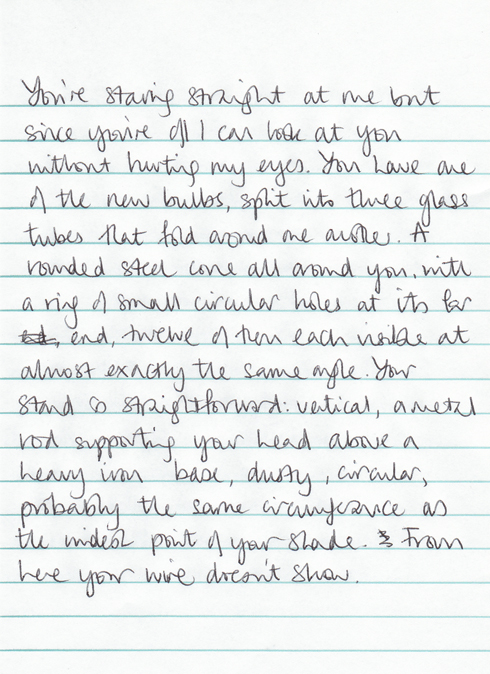 You're staring straight at me but
since you're off I can look at you
without hurting my eyes. You have one
of the new bulbs, split into three glass
tubes that fold around one another. A
rounded steel cone all around you, with
a ring of small circular holes at its far
end, twelve of them each visible at
almost exactly the same angle. Your
stand is straightforward: vertical, a metal
rod supporting your head above a
heavy iron base, dusty, circular,
probably the same circumference as
the widest point of your shade. From
here your wire doesn't show.